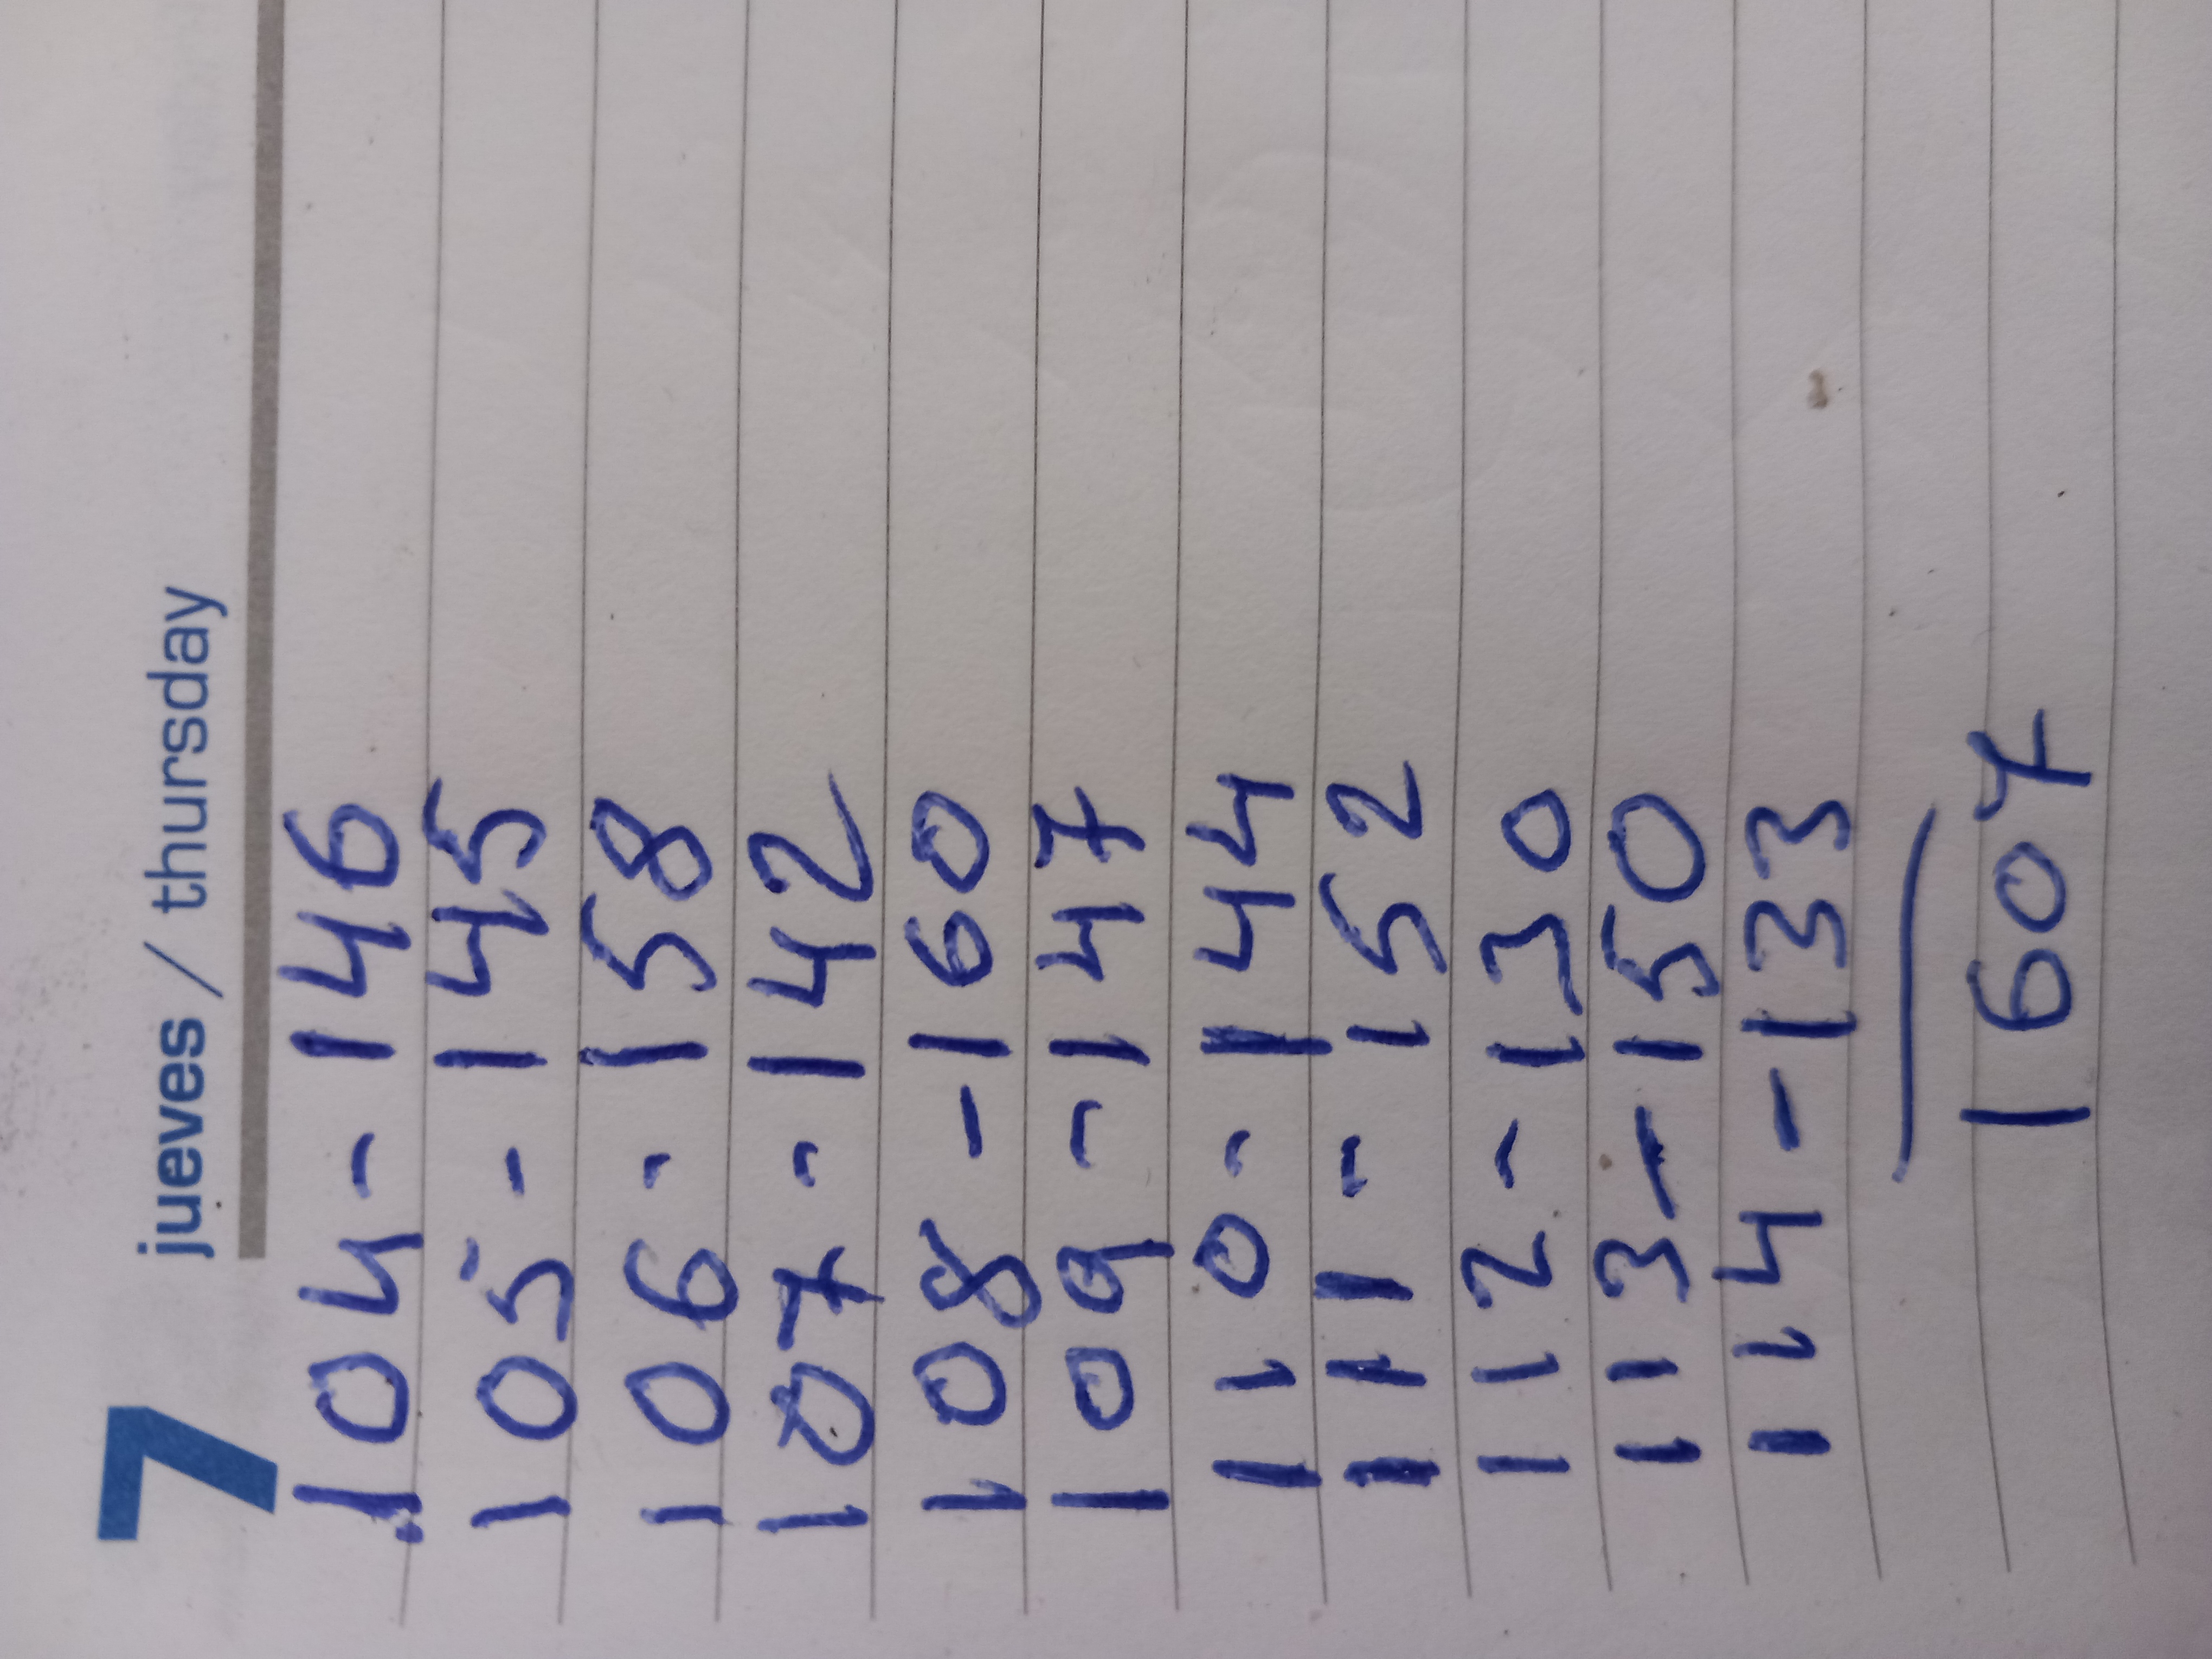 7 jueves / thursday
104 - 146
105 - 145
106 - 158
107 - 142
108 - 160
109 - 147
110 - 144
111 - 152
112 - 130
113 - 150
114 - 133
1607